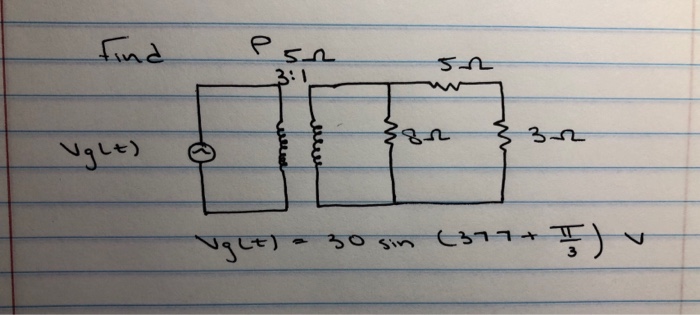 Find P 5Ω
5Ω
3:1
8Ω
3Ω
Vg(t)
Vg(t) = 30 sin (377+ π/3) V